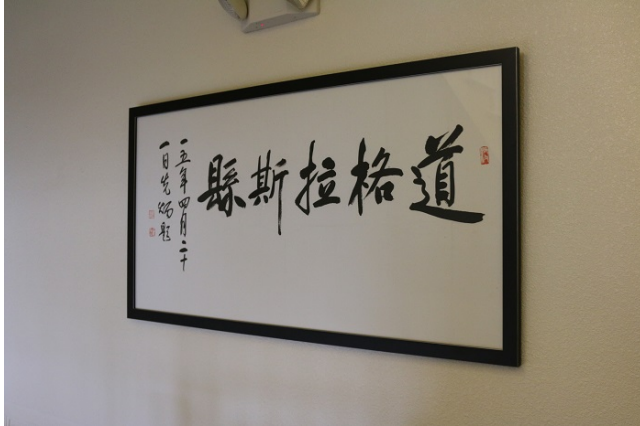 道格拉斯縣
一五年四月二十
一日先炳題